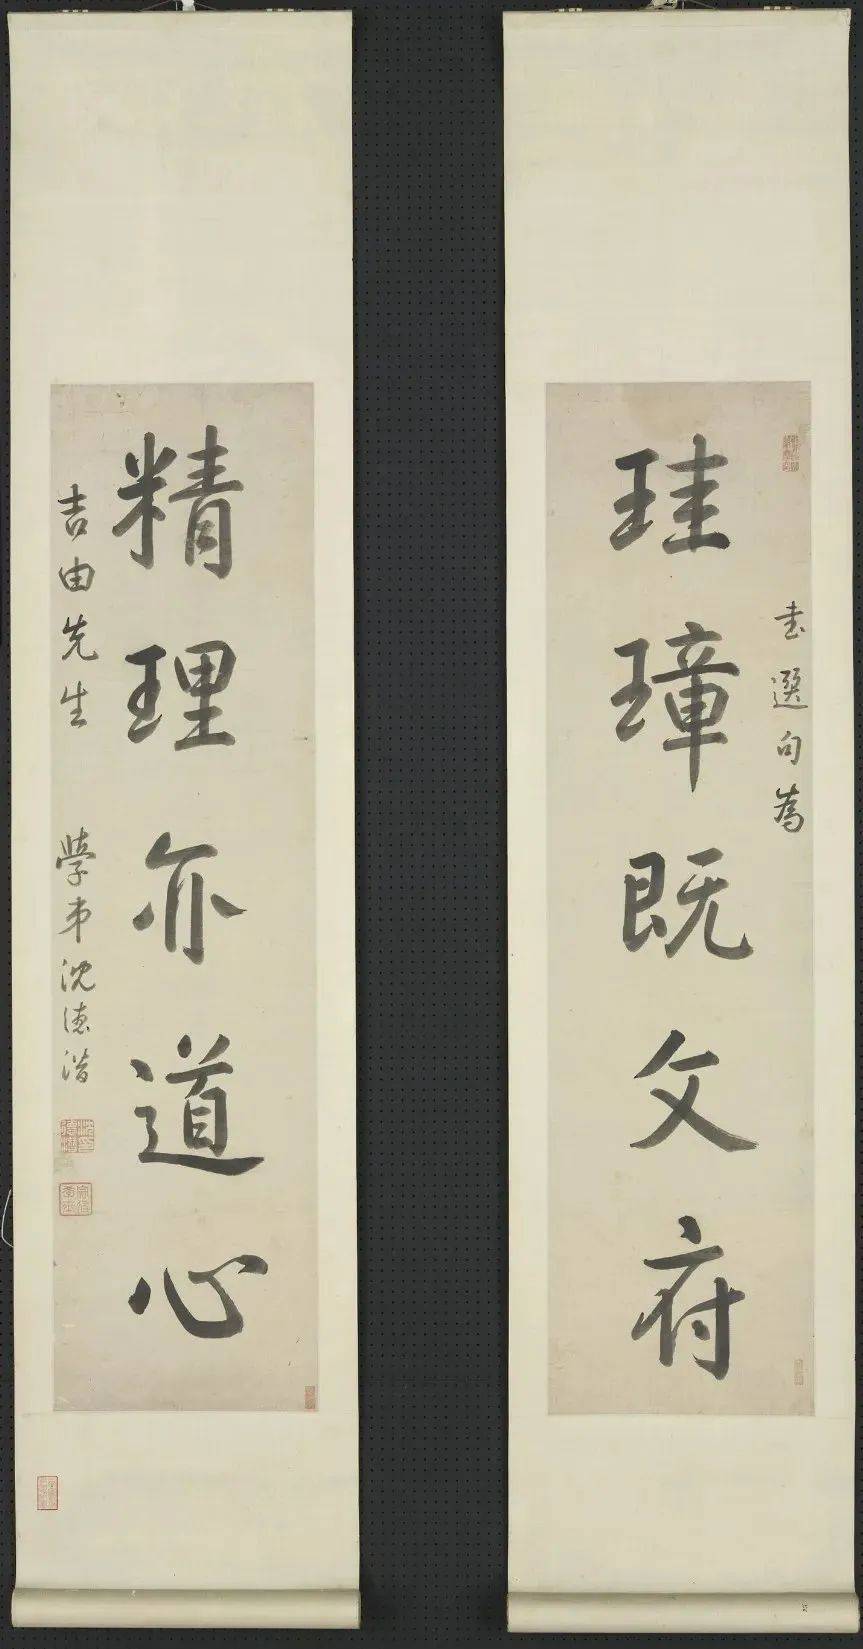 書選句為
珪璋既文府
精理亦道心
吉由先生 學弟沈德潛